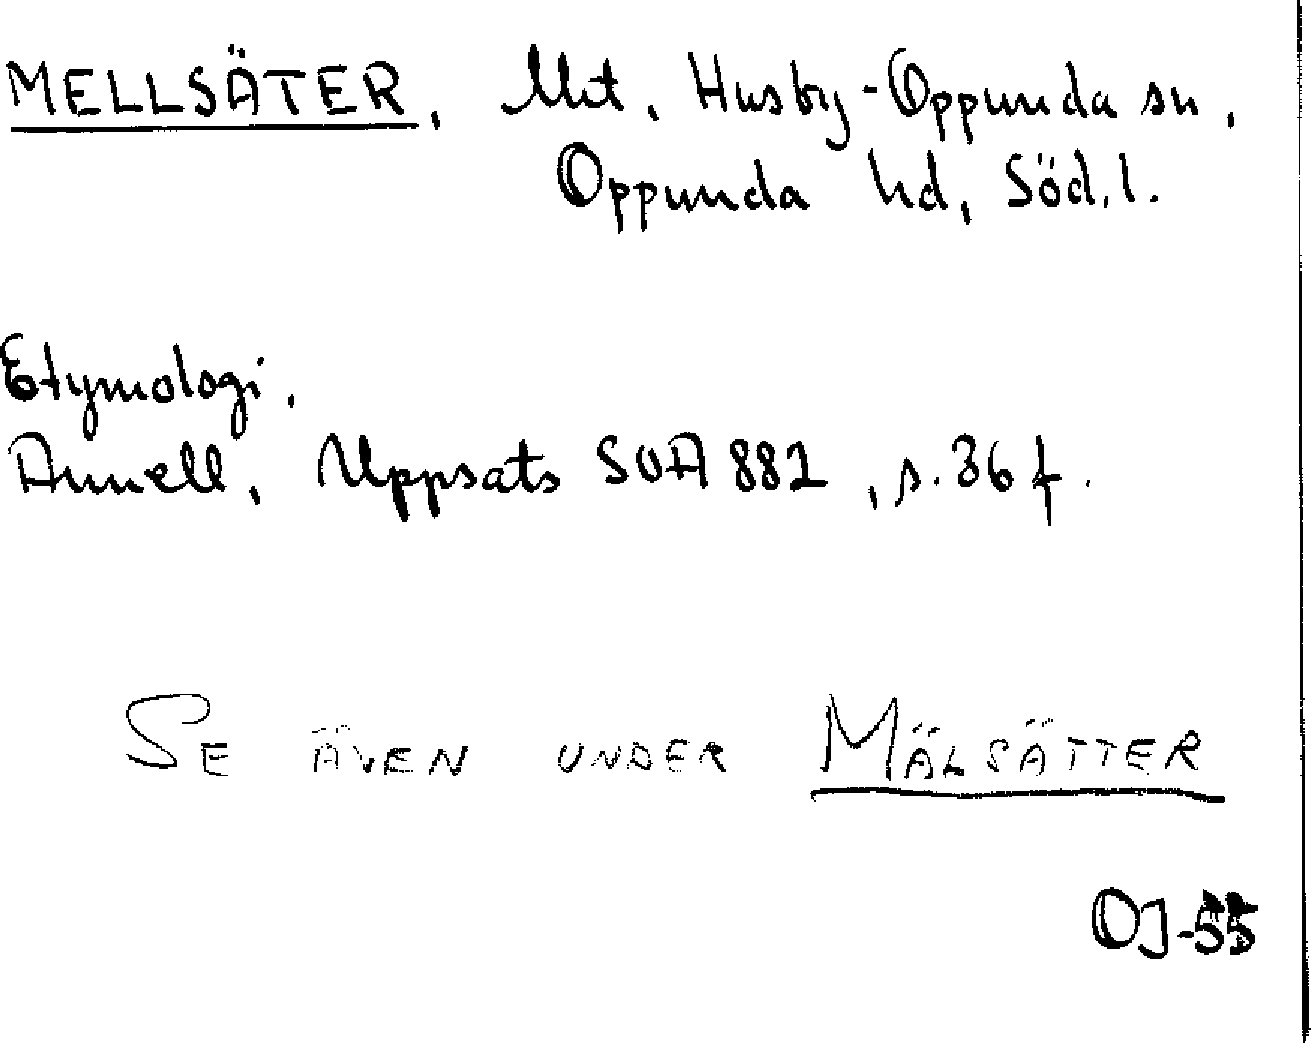 MELLSÄTER, Utt. Husby-Oppunda sn,
Oppunda hd, Söd.l.
Etymologi.
Annell, Uppsats SOA 882, s. 36 f.
SE ÄVEN UNDER MÄLSÄTTER
OJ-55